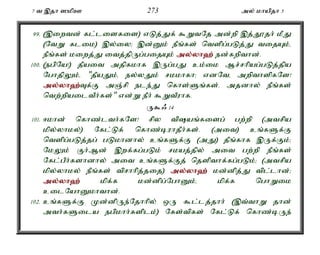 7 வ இதா ஸமிஊ 273 அல் மாயிதா 5
99. (இறைவன் கட்டளைகளை) எடுத்துக் கூறுவதே அன்றி இத்தூதர் மீது
(வேறு கடமை) இல்லை; இன்னும் நீங்கள் வெளிப்படுத்து வதையும்,
நீங்கள் மறைத்து வைத்திருப்பதையும் அல்லாஹ் நன்கறிவான்.
100. (நபியே!) தீயவை அதிகமாக இருப்பது உம்மை ஆச்சரியப்படுத்திய
போதிலும், "தீயதும், நல்லதும் சமமாகா; எனவே, அறிவாளிகளே!
அல்லாஹ்வுக்கு அஞ்சி நடந்து கொள்ளுங்கள். அதனால் நீங்கள்
வெற்றியடைவீர்கள்" என்று நீர் கூறுவீராக.
ருகூஃ 14
101. ஈமான் கொண்டவர்களே! சில விஷயங்களைப் பற்றி (அவசிய
மில்லாமல்) கேட்டுக் கொண்டிராதீர்கள். (அவை) உங்களுக்கு
வெளிப்படுத்தப் படுமானால் உங்களுக்கு (அது) தீங்காக இருக்கும்;
மேலும் குர்ஆன் இறக்கப்படும் சமயத்தில் அவை பற்றி நீங்கள்
கேட்பீர்களானால் அவை உங்களுக்குத் தெளிவாக்கப்படும்; (அவசிய
மில்லாமல் நீங்கள் விசாரித்ததை) அல்லாஹ் மன்னித்து விட்டான்;
அல்லாஹ் மிக்க மன்னிப்போனும், மிக்க பொறுமை
உடையோனுமாவான்.
102. உங்களுக்கு முன்னிருந்தோரில் ஒரு கூட்டத்தார் (இவ்வாறு தான்
அவர்களுடைய நபிமார்களிடம்) கேள்விகள் கேட்டுக் கொண்டிருந்